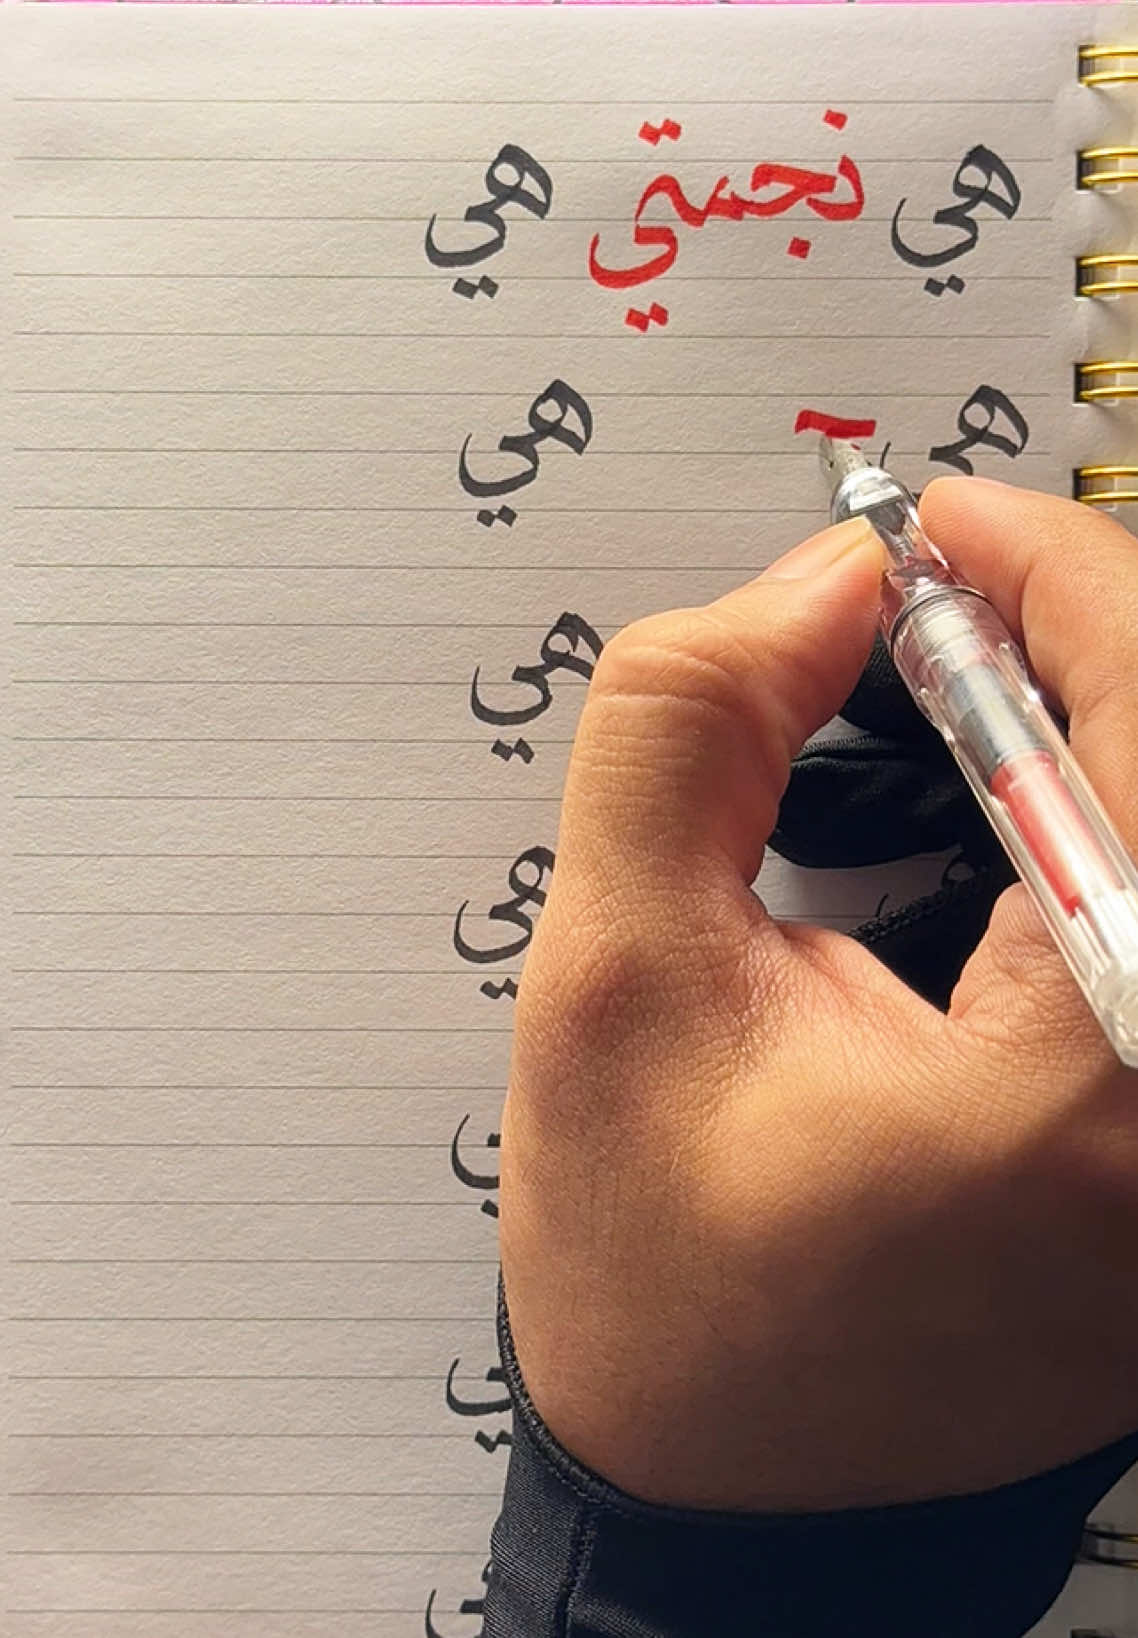 هي نجمتي هي
هي هي
هي
هي